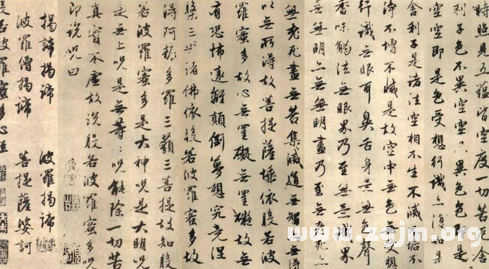 照見五蘊皆空度一切
利子色不異空空不異色色
空空即是受想行識亦復如是
舍利子是諸法空相不生不滅不垢不
淨不增不減是故空中無色無受想
行識無眼耳鼻舌身意無色聲
香味觸法無眼界乃至無意識界
無無明亦無無明盡乃至無老死亦
無老死盡無苦集滅道無智亦無得
以無所得故菩提薩埵依般若波
羅蜜多故心無罣礙無罣礙故無
有恐怖遠離顛倒夢想究竟涅
槃三世諸佛依般若波羅蜜多故
得阿耨多羅三藐三菩提故知般
若波羅蜜多是大神呪是大明呪
是無上呪是無等等呪能除一切苦
真實不虛故說般若波羅蜜多呪
即說呪曰
揭諦揭諦 波羅揭諦
波羅僧揭諦 菩提薩婆訶
般若波羅蜜多心經
www.zajm.net